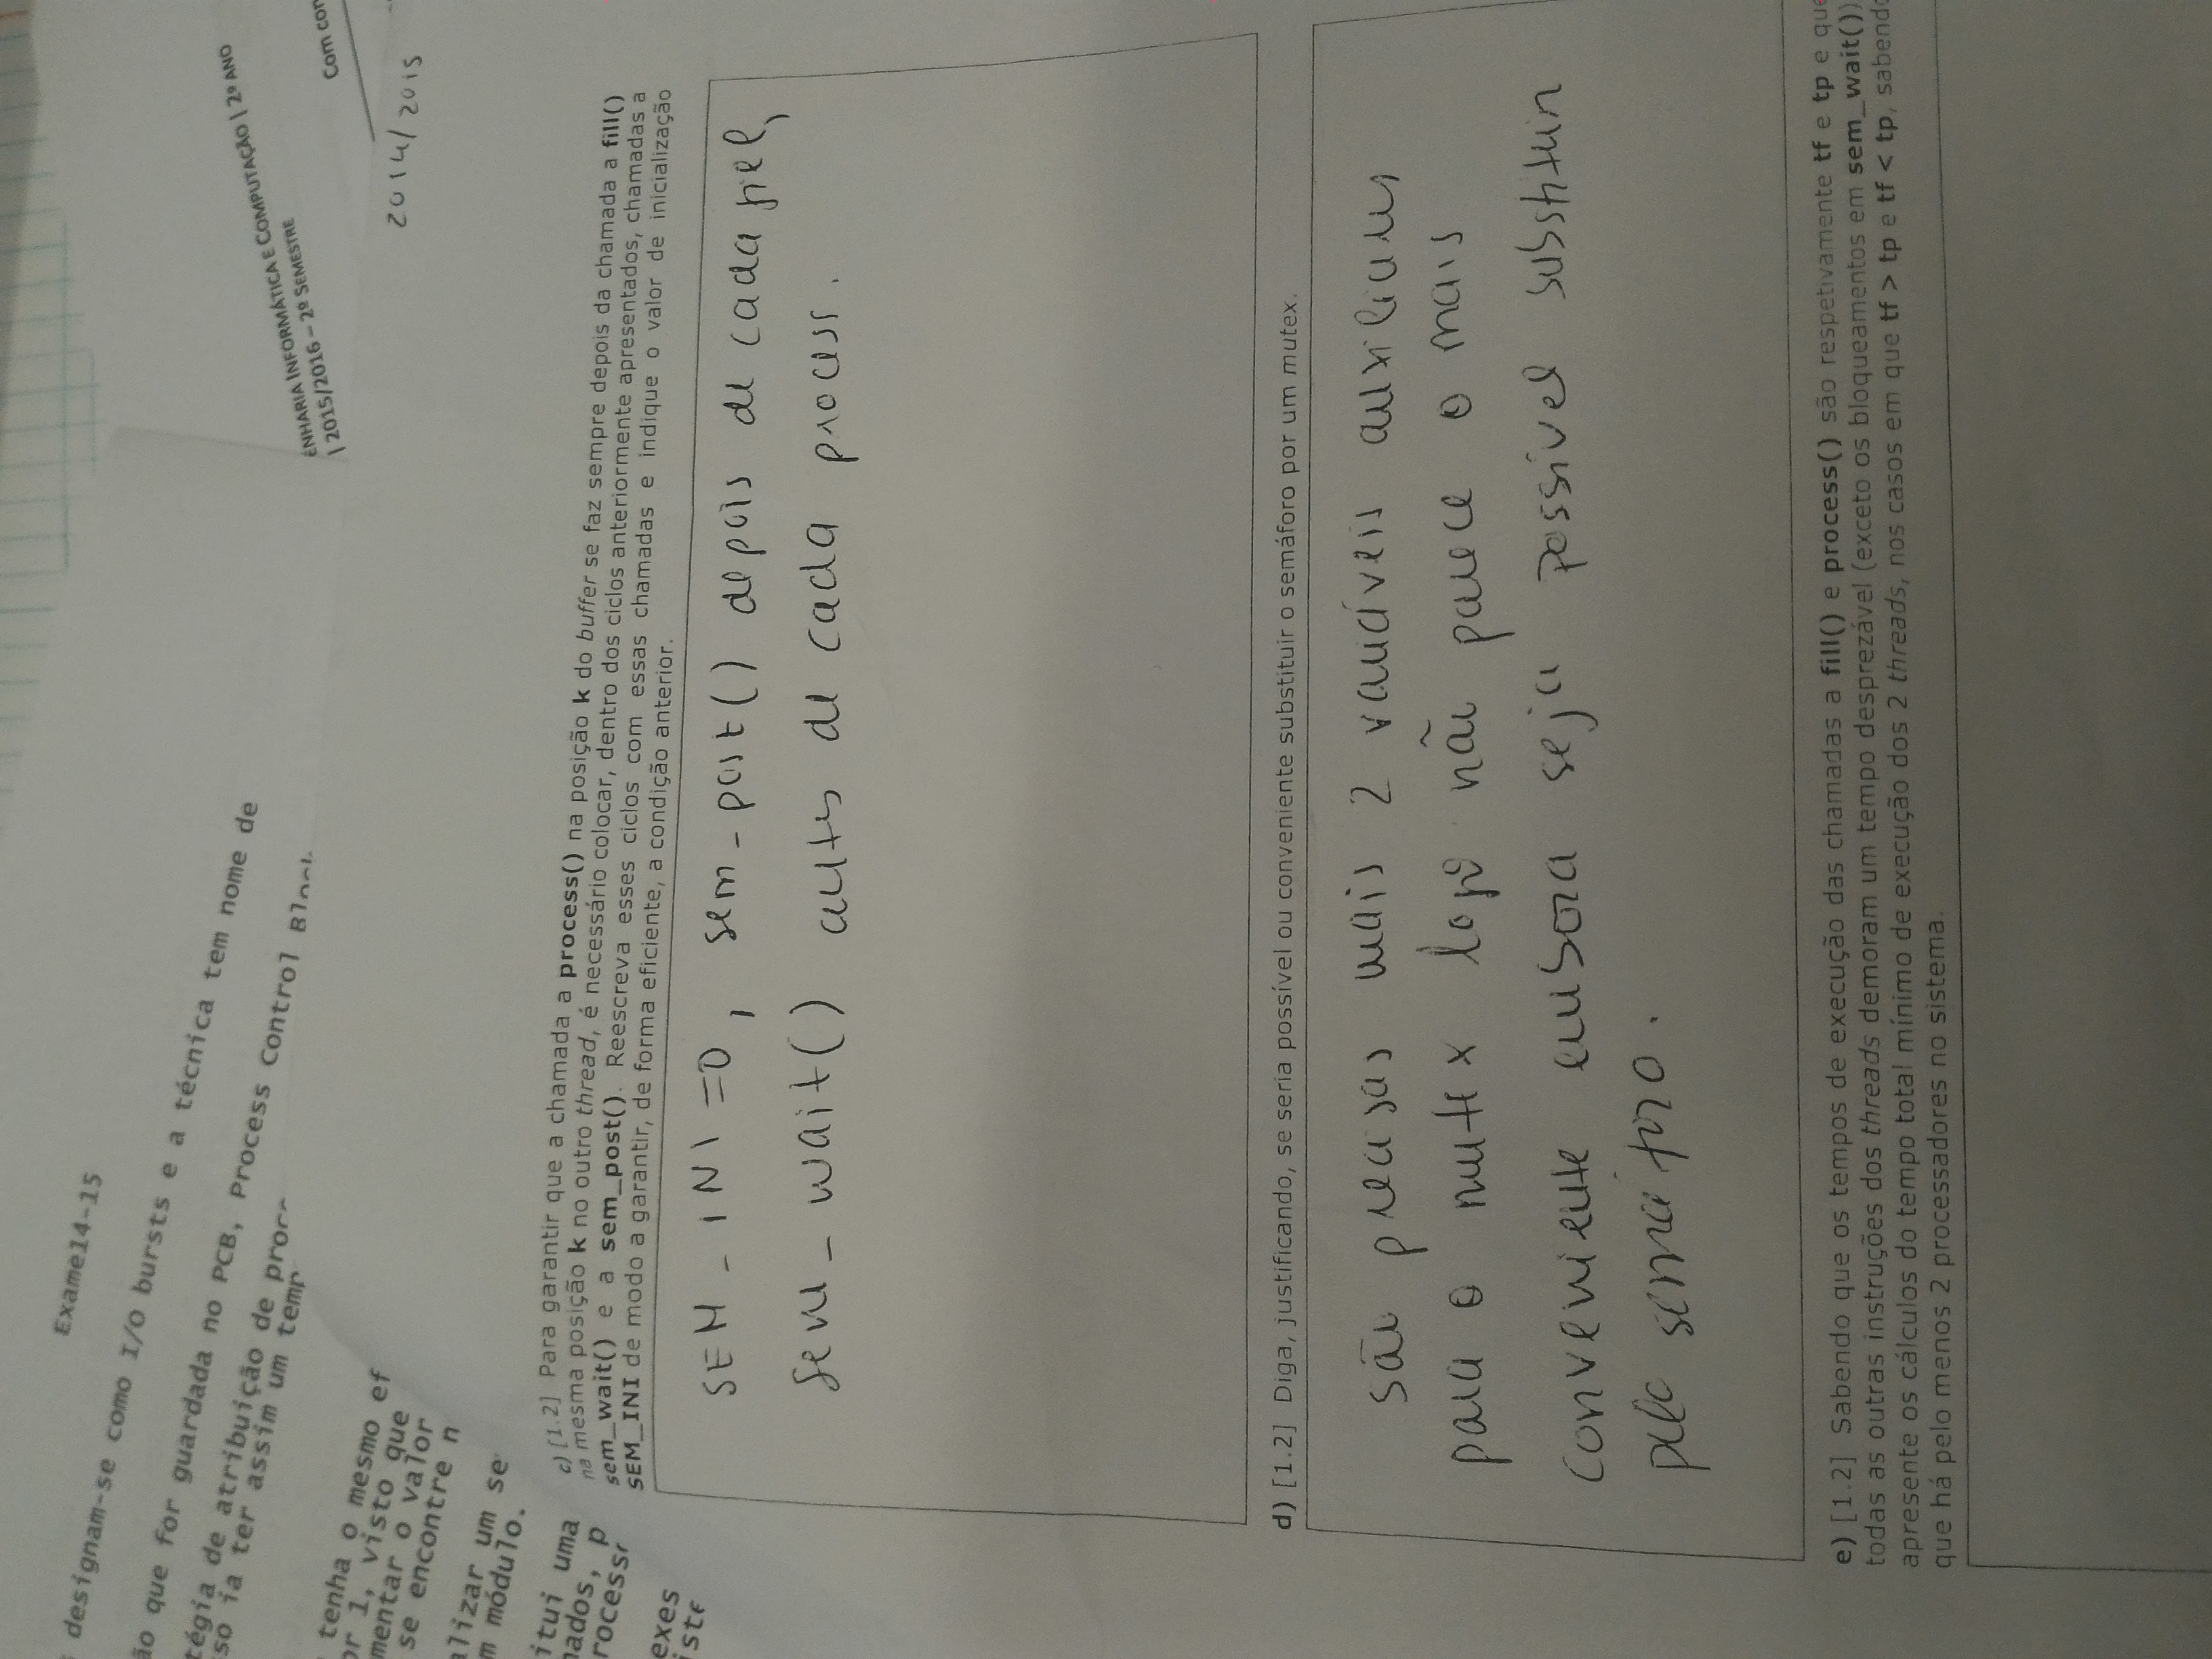 Exame14-15
designam-se como I/O bursts e a técnica tem nome de
ão que for guardada no PCB, Process Control Block
tégia de atribuição de proc
so ia ter assim um temp
tenha o mesmo ef
or 1, visto que
mentar o valor
se encontre n
alizar um se
m módulo.
itui uma
nados, p
rocess
exes
iste
ENHARIA INFORMÁTICA E COMPUTAÇÃO | 2º ANO
| 2015/2016 – 2º SEMESTRE
Com con
2014/2015
c) [1.2] Para garantir que a chamada a process() na posição k do buffer se faz sempre depois da chamada a fill()
na mesma posição k no outro thread, é necessário colocar, dentro dos ciclos anteriormente apresentados, chamadas a
sem_wait() e a sem_post(). Reescreva esses ciclos com essas chamadas e indique o valor de inicialização
SEM_INI de modo a garantir, de forma eficiente, a condição anterior.
SEM_INI=0, sem_post() depois de cada fiel,
sem_wait() antes de cada process.
d) [1.2] Diga, justificando, se seria possível ou conveniente substituir o semáforo por um mutex.
são precisas mais 2 variáveis auxiliares
para o mutex logo não parece o mais
conveniente embora seja possível substituir
pelo semáforo.
e) [1.2] Sabendo que os tempos de execução das chamadas a fill() e process() são respetivamente tf e tp e que
todas as outras instruções dos threads demoram um tempo desprezável (exceto os bloqueamentos em sem_wait())
apresente os cálculos do tempo total mínimo de execução dos 2 threads, nos casos em que tf > tp e tf < tp, sabendo
que há pelo menos 2 processadores no sistema.